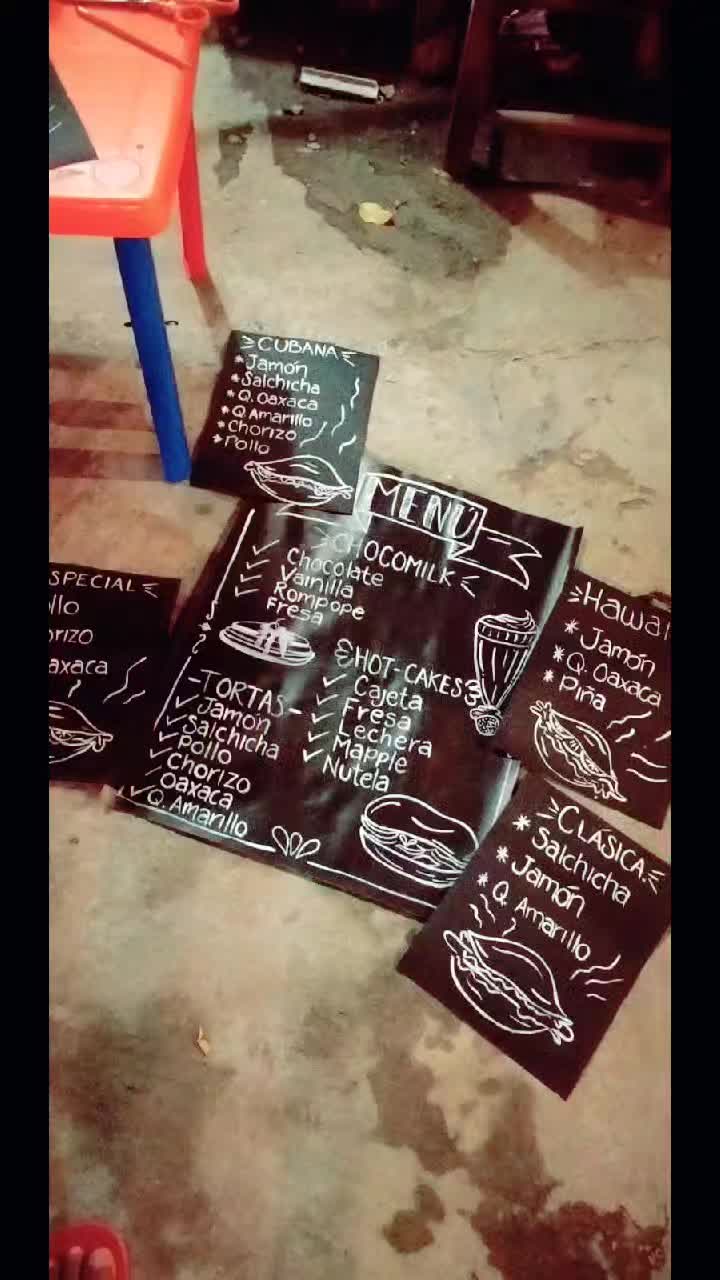 CUBANA
* Jamón
* Salchicha
* Q. Oaxaca
* Q Amarillo
* Chorizo
* Pollo
MENÚ
CHOCOMILK
✓ Chocolate
✓ Vainilla
✓ Rompope
Fresa
HOT-CAKES
✓ Cajeta
✓ Fresa
✓ Lechera
✓ Mapple
✓ Nutela
-TORTAS-
✓ Jamón
✓ Salchicha
✓ Pollo
✓ Chorizo
✓ Oaxaca
✓ Q. Amarillo
SPECIAL
llo
orizo
axaca
Hawai
* Jamón
* Q. Oaxaca
* Piña
CLÁSICA
* Salchicha
* Jamón
* Q Amarillo